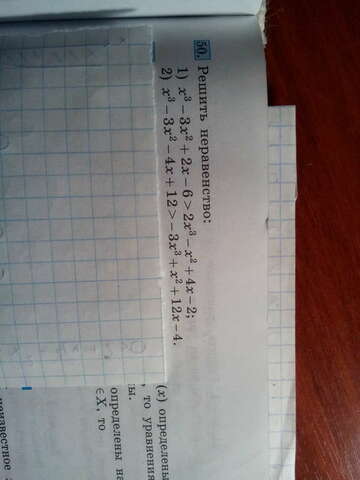 50. Решить неравенство:
1) x³ − 3x² + 2x − 6 > 2x³ − x² + 4x − 2;
2) x³ − 3x² − 4x + 12 > −3x³ + x² + 12x − 4.
(x) определены
, то уравнения
ы.
определены на
∈X, то
неизвестное